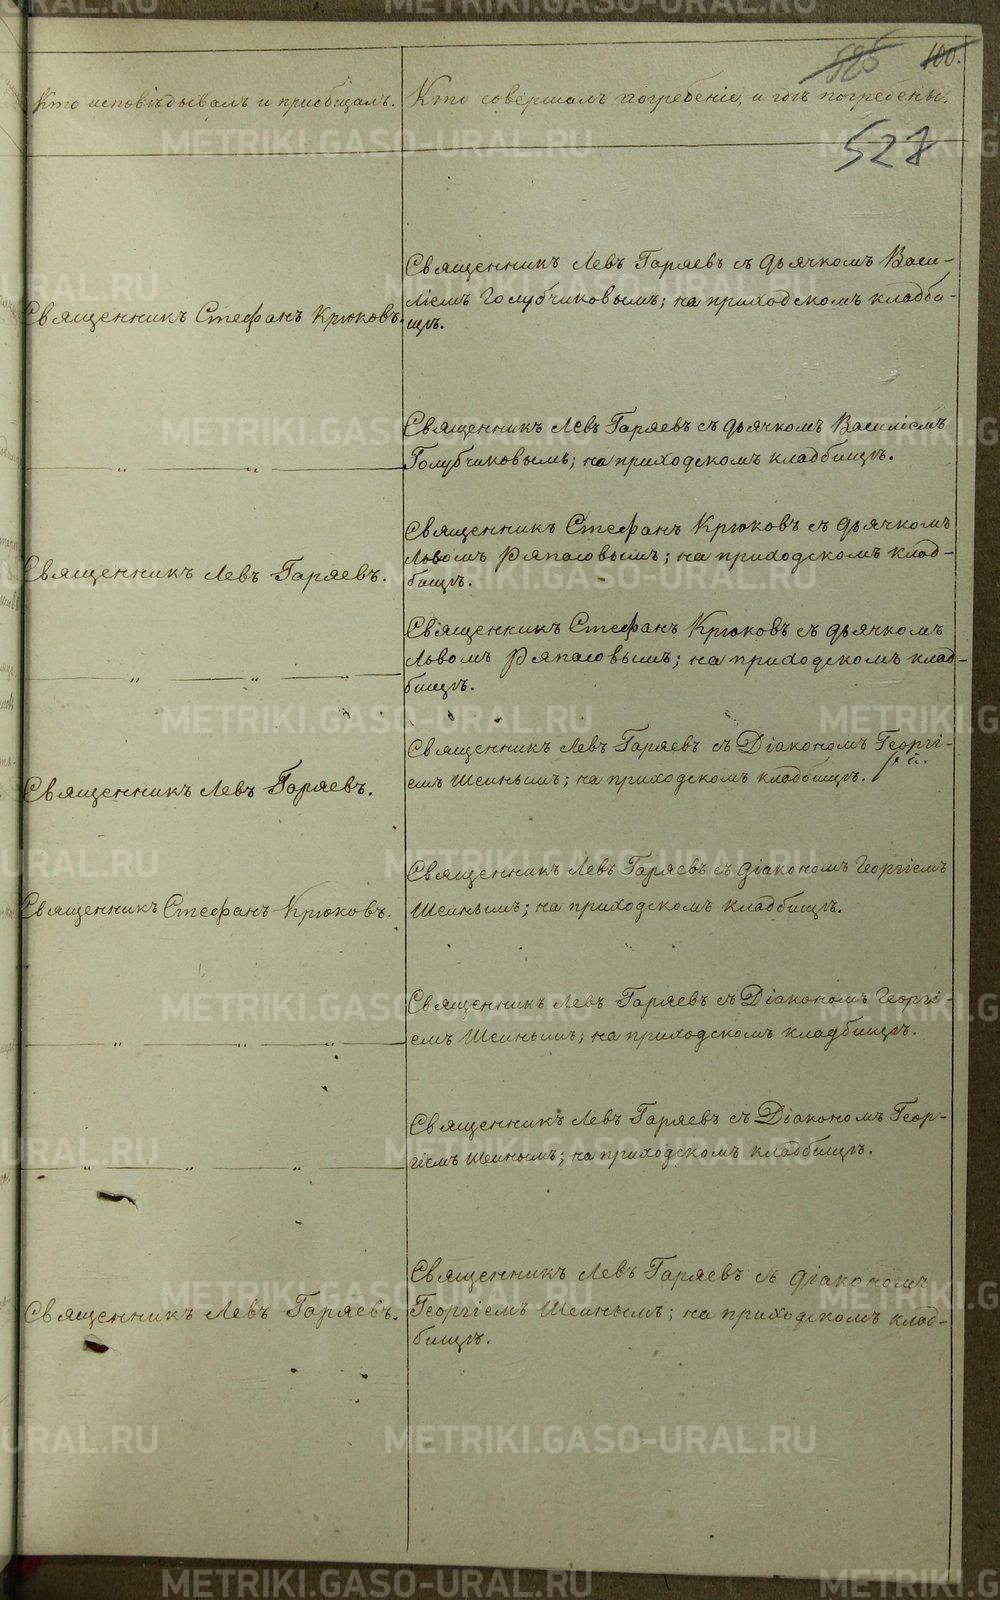 526 100.
Кто исповѣдывалъ и приобщалъ. Кто совершалъ погребеніе, и гдѣ погребены.
527
Священникъ Стефанъ Крюковъ.
Священникъ Левъ Гаряевъ съ дьячкомъ Васи-
ліемъ Голубчиковымъ; на приходскомъ кладби-
щѣ.
— „ — „ —
Священникъ Левъ Гаряевъ съ дьячкомъ Василіемъ
Голубчиковымъ; на приходскомъ кладбищѣ.
Священникъ Левъ Гаряевъ.
Священникъ Стефанъ Крюковъ съ дьячкомъ
Львомъ Ряпасовымъ; на приходскомъ клад-
бищѣ.
— „ — „ —
Священникъ Стефанъ Крюковъ съ дьячкомъ
Львомъ Ряпасовымъ; на приходскомъ клад-
бищѣ.
Священникъ Левъ Гаряевъ.
Священникъ Левъ Гаряевъ съ Діакономъ Георгі-
емъ Шеинымъ; на приходскомъ кладбищѣ.
Священникъ Стефанъ Крюковъ.
Священникъ Левъ Гаряевъ съ діакономъ Георгіемъ
Шеинымъ; на приходскомъ кладбищѣ.
— „ — „ — „ —
Священникъ Левъ Гаряевъ съ Діакономъ Георгі-
емъ Шеинымъ; на приходскомъ кладбищѣ.
— „ — „ — „ —
Священникъ Левъ Гаряевъ съ Діакономъ Геор-
гіемъ Шеинымъ; на приходскомъ кладбищѣ.
Священникъ Левъ Гаряевъ.
Священникъ Левъ Гаряевъ съ діакономъ
Георгіемъ Шеинымъ; на приходскомъ клад-
бищѣ.
METRIKI.GASO-URAL.RU